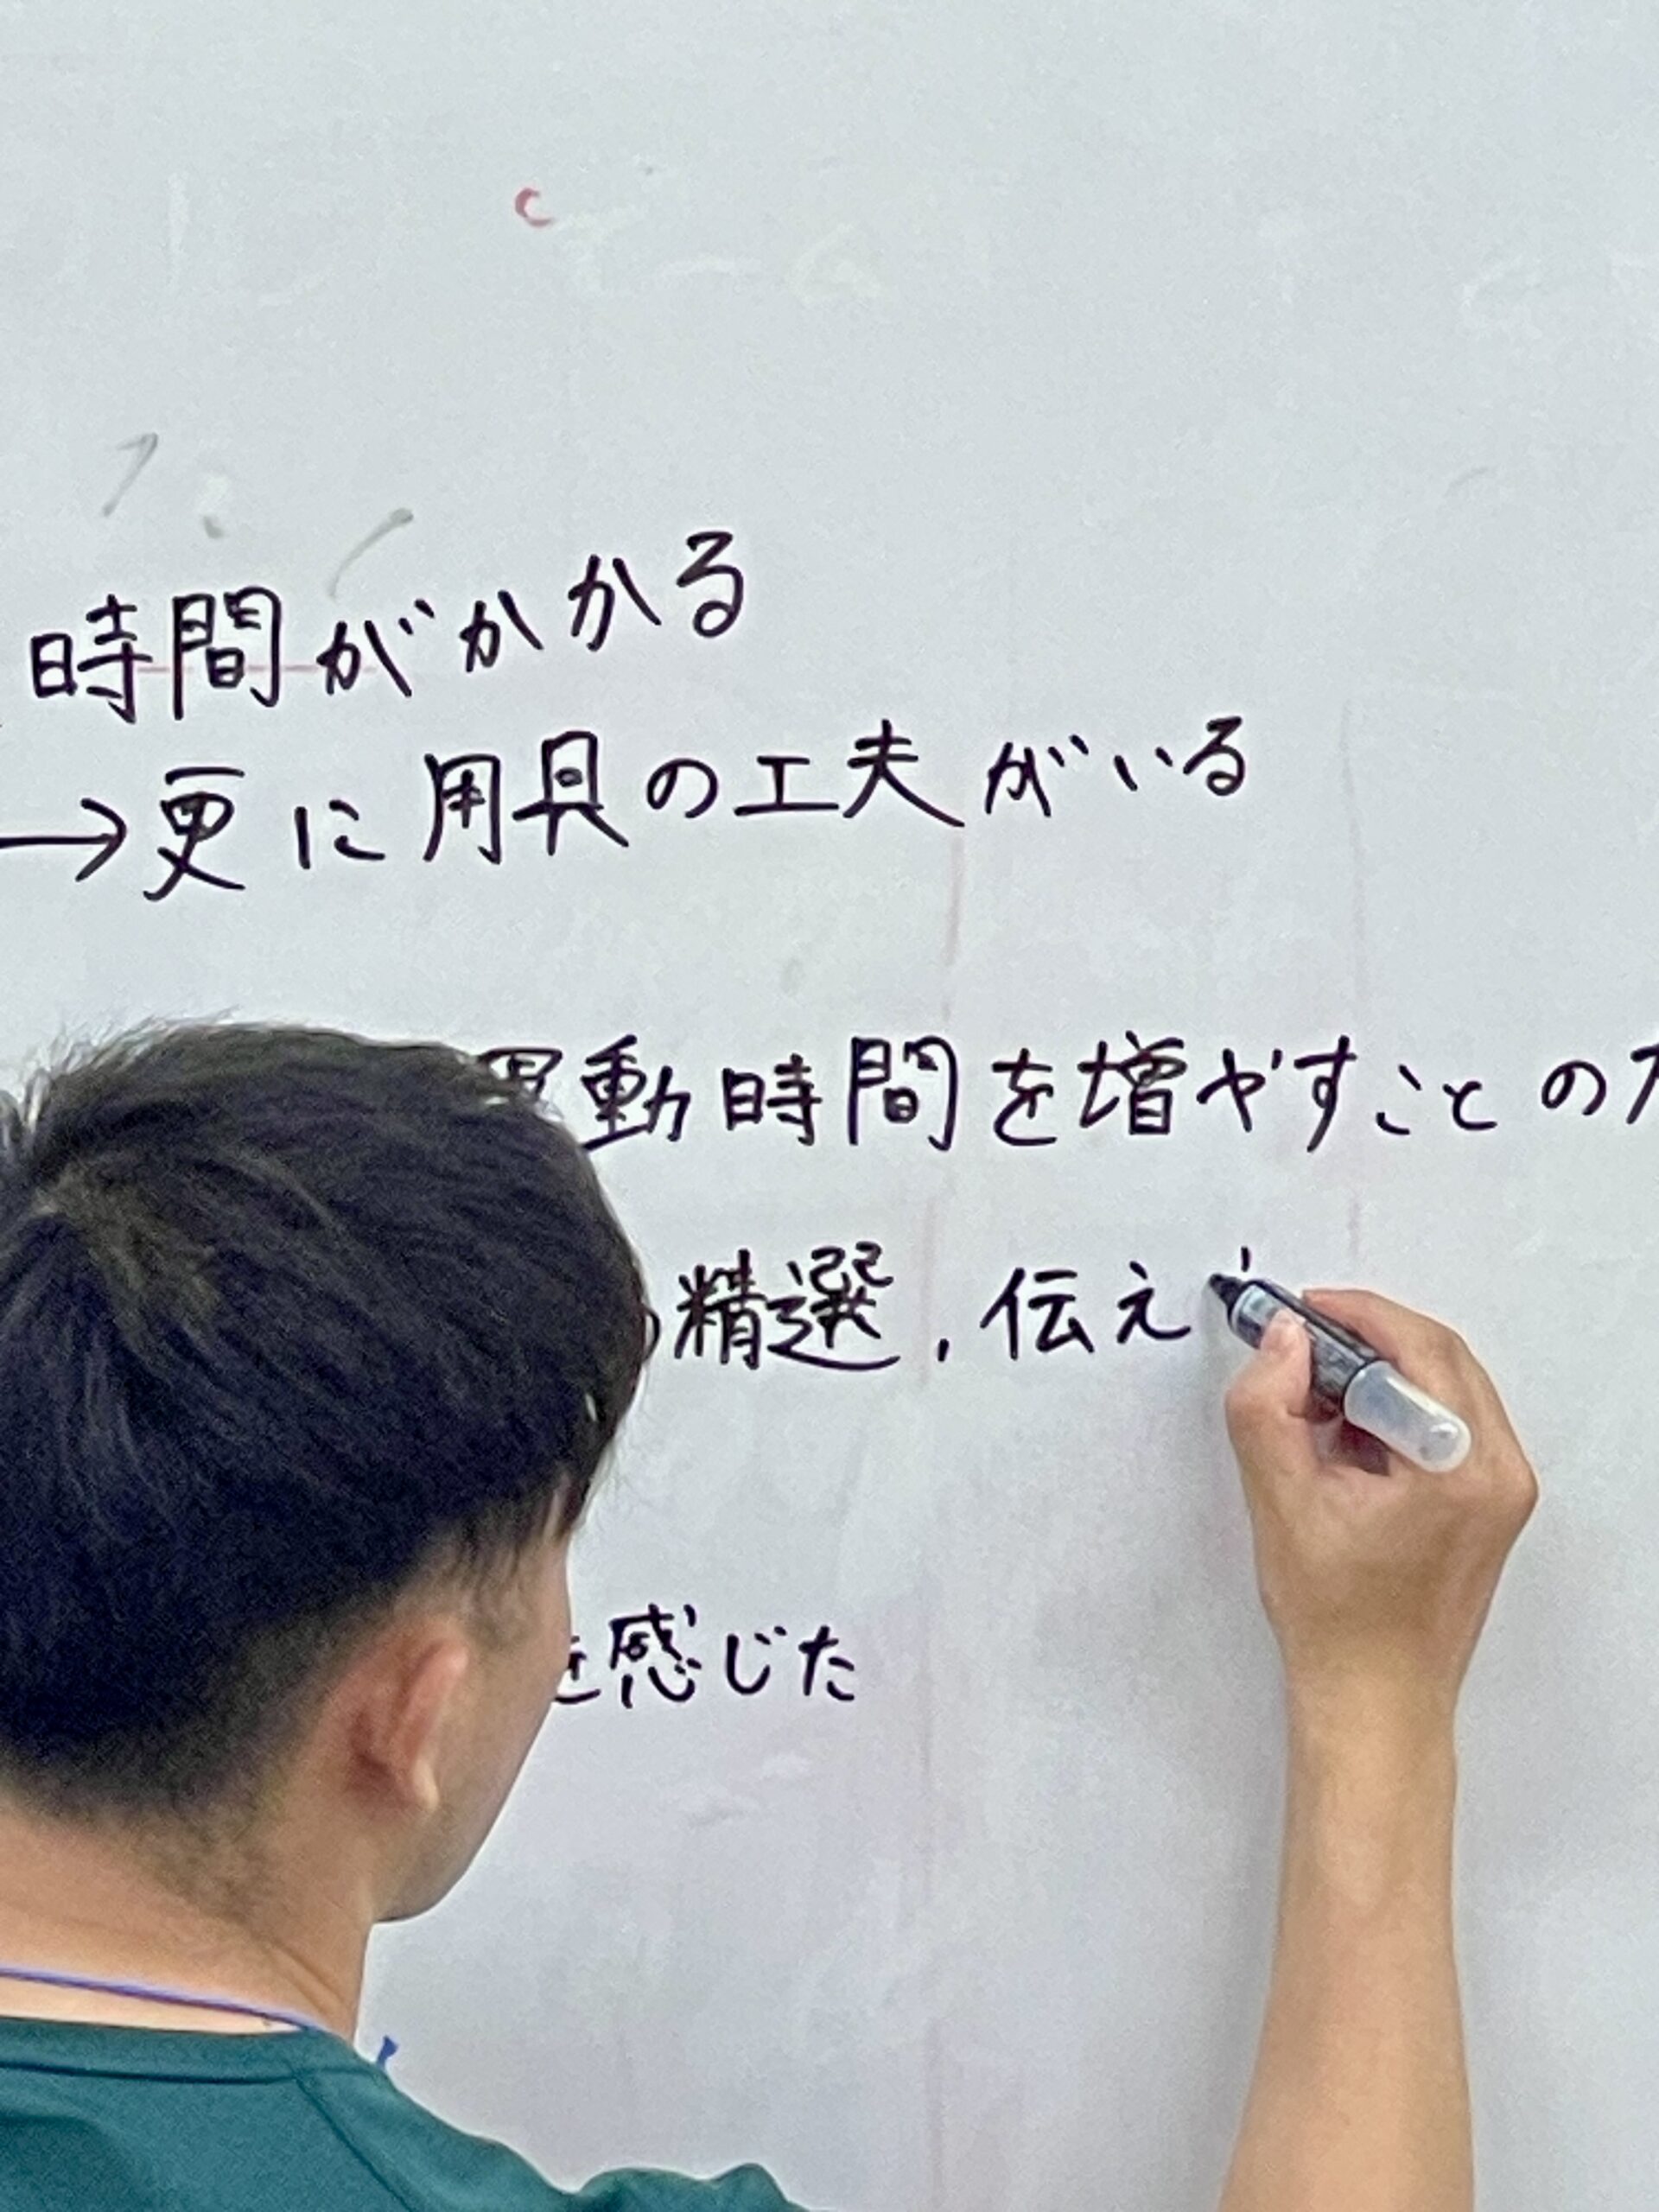 時間がかかる
→更に用具の工夫がいる
動時間を増やすことの
精選,伝え
を感じた